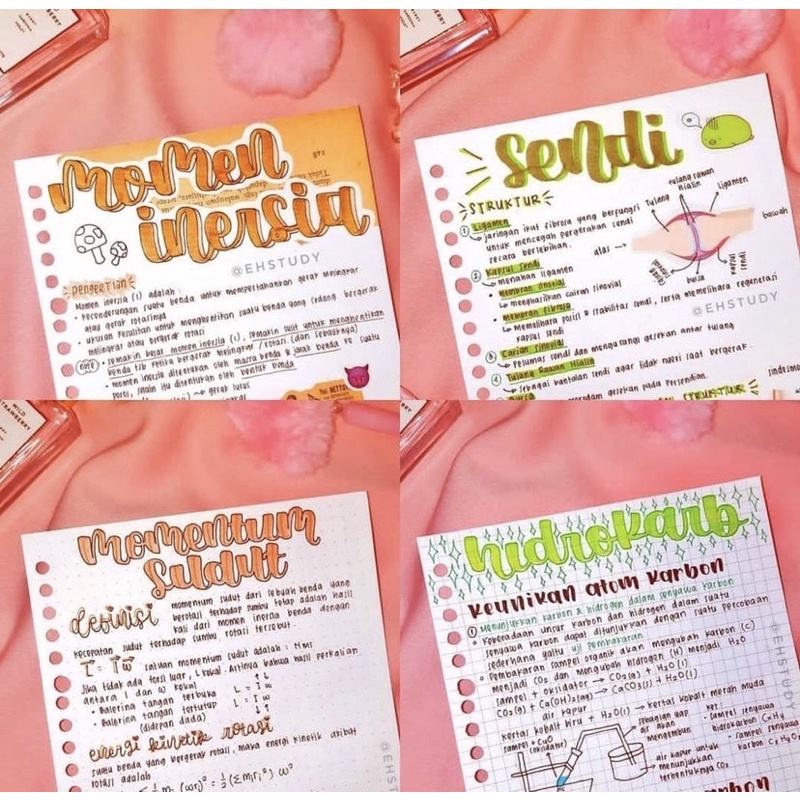 momen
inersia
@EHSTUDY
pengertian
Momen inersia (I) adalah :
• kecenderungan suatu benda untuk mempertahankan gerak melingkar
atau gerak rotasinya
• ukuran kesulitan untuk menghentikan suatu benda yang sedang bergerak
melingkar atau bergerak rotasi
note • semakin besar momen inersia (I), semakin sulit untuk menghentikan
benda tsb ketika bergerak melingkar / rotasi (dan sebaliknya)
• momen inersia ditentukan oleh massa benda & jarak benda ke suatu
poros, selain itu ditentukan oleh bentuk benda
→ gerak lurus
sendi
STRUKTUR
tulang
tulang rawan
hialin
ligamen
① Ligamen
jaringan ikat fibrosa yang berfungsi
untuk mencegah pergerakan sendi
secara berlebihan.
atas →
bawah
② Kapsul sendi
menahan ligamen
• Membran sinovial
menghasilkan cairan sinovial
• membran fibrosa
Memelihara posisi & stabilitas sendi, serta memelihara regenerasi
kapsul sendi
bursa
kapsul
sendi
@EHSTUDY
③ Cairan sinovial
Pelumas sendi dan mengurangi gesekan antar tulang
④ Tulang Rawan Hialin
sebagai bantalan sendi agar tidak nyeri saat bergerak.
gesekan pada persendian.
STRUKTUR
WILD
STRAWBERRY
momentum
sudut
definisi
momentum sudut dari sebuah benda yang
berotasi terhadap sumbu tetap adalah hasil
kali dari momen inersia benda dengan
kecepatan sudut terhadap sumbu rotasi tersebut.
L = I w satuan momentum sudut adalah : Nms
Jika tidak ada torsi luar, L kekal. Artinya bahwa hasil perkalian
antara I dan w kekal
• Balerina tangan terbuka L = I w
• Balerina tangan tertutup L = I w
(didepan dada)
energi kinetik rotasi
suatu benda yang bergerak rotasi, maka energi kinetik akibat
rotasi adalah
½ mi (wri)² = ½ (Σ miri²) w²
@EHSTUDY
hidrokarb
keunikan atom karbon
① Menunjukkan karbon & hidrogen dalam senyawa karbon
• Keberadaan unsur karbon dan hidrogen dalam suatu
senyawa karbon dapat ditunjukkan dengan suatu percobaan
sederhana yaitu uji pembakaran.
• Pembakaran sampel organik akan mengubah karbon (C)
menjadi CO₂ dan mengubah hidrogen (H) menjadi H₂O
sampel + oksidator → CO₂(g) + H₂O(l)
CO₂(g) + Ca(OH)₂(aq) → CaCO₃(s) + H₂O(l)
air kapur
kertas kobalt biru + H₂O(l) → kertas kobalt merah muda
sampel + CuO
(oksidator)
sebagian uap
air akan
mengembun
ket :
- sampel senyawa
hidrokarbon CxHy
- sampel senyawa
karbon CxHyOz
air kapur untuk
menunjukkan
terbentuknya CO₂
@EHSTUDY